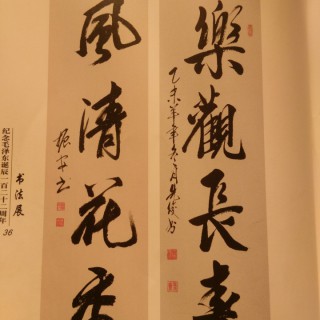 樂觀長壽
乙未年
風清花香
振安书
纪念毛泽东诞辰一百二十二周年
书法展
36